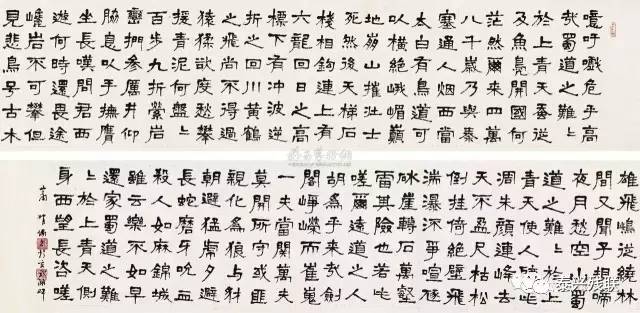 噫吁嚱危乎高
哉蜀道之難〻
於上青天蠶叢
及魚鳧開國何
茫然爾來四萬
八千歲乃與秦
塞通人烟西當
太白有鳥道可
以橫絕峨嵋巔
地崩山摧壯士
死然後天梯石
棧相鉤連上有
六龍回日之高
標下有冲波逆
折之回川黃鶴
之飛尚不得過
猿猱欲度愁攀
援青泥何盤〻
百步九折縈岩
巒捫參歷井仰
脅息以手撫膺
坐長嘆問君西
遊何時還畏途
巉岩不可攀但
見悲鳥號古木
雄飛雌從繞林
間又聞子規啼
夜月愁空山蜀
道之難〻於上
青天使人聽此
凋朱顏連峰去
天不盈尺枯松
倒挂倚絕壁飛
湍瀑流爭喧豗
砯崖轉石萬壑
雷其險也若此
嗟爾遠道之人
胡為乎來哉劍
閣崢嶸而崔嵬
一夫當關萬夫
莫開所守或匪
親化為狼與豺
朝避猛虎夕避
長蛇磨牙吮血
殺人如麻錦城
雖云樂不如早
還家蜀道之難
〻於上青天側
身西望長咨嗟
泰兴残联